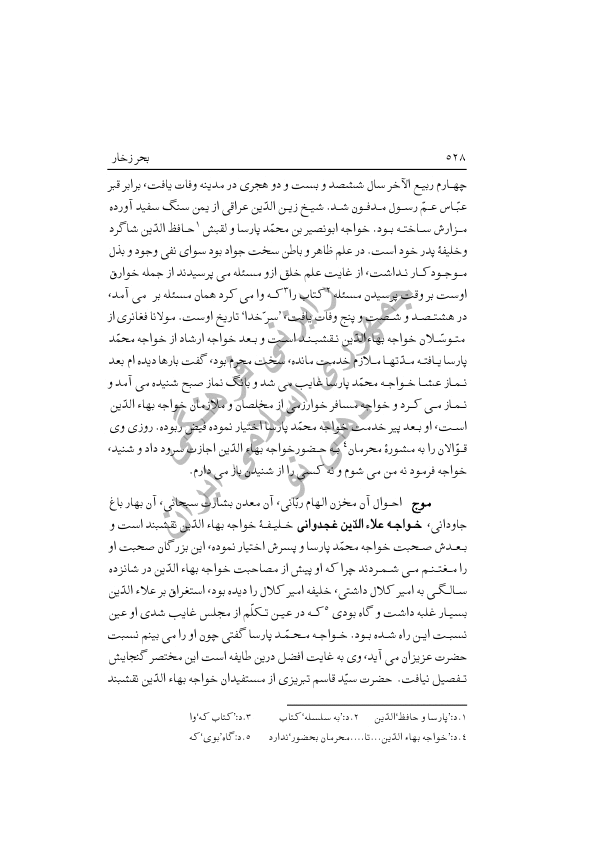 ۵۲۸ بحر زخار
چهارم ربیع الآخر سال ششصد و بست و دو هجری در مدینه وفات یافت، برابر قبر
عبّاس عمّ رسول مدفون شد. شیخ زین الدّین عراقی از یمن سنگ سفید آورده
مزارش ساخته بود. خواجه ابونصیر بن محمّد پارسا و لقبش ۱حافظ الدّین شاگرد
وخلیفۀ پدر خود است. در علم ظاهر و باطن سخت جواد بود سوای نفی وجود و بذل
موجود کار نداشت، از غایت علم خلق ازو مسئله می پرسیدند از جمله خوارق
اوست بر وقت پرسیدن مسئله ۲کتاب را۳که وا می کرد همان مسئله بر می آمد،
در هشتصد و شصت و پنج وفات یافت، ’سرّ خدا‘ تاریخ اوست. مولانا فغانری از
متوسّلان خواجه بهاء الدّین نقشبند است و بعد خواجه ارشاد از خواجه محمّد
پارسا یافته مدّتها ملازم خدمت مانده، سخت محرم بود، گفت بارها دیده ام بعد
نماز عشا خواجه محمّد پارسا غایب می شد و بانگ نماز صبح شنیده می آمد و
نماز می کرد و خواجه مسافر خوارزمی از مخلصان و ملازمان خواجه بهاء الدّین
است، او بعد پیر خدمت خواجه محمّد پارسا اختیار نموده فیض ربوده. روزی وی
قوّالان را به مشورۀ محرمان۴ به حضور خواجه بهاء الدّین اجازت سرود داد و شنید،
خواجه فرمود نه من می شوم و نه کسی را از شنیدن باز می دارم.
موج احوال آن مخزن الهام ربّانی، آن معدن بشارت سبحانی، آن بهار باغ
جاودانی، خواجه علاء الدّین غجدوانی خلیفۀ خواجه بهاء الدّین نقشبند است و
بعدش صحبت خواجه محمّد پارسا و پسرش اختیار نموده، این بزرگان صحبت او
را مغتنم می شمردند چرا که او پیش از مصاحبت خواجه بهاء الدّین در شانزده
سالگی به امیر کلال داشتی، خلیفه امیر کلال را دیده بود، استغراق بر علاء الدّین
بسیار غلبه داشت و گاه بودی ۵که در عین تکلّم از مجلس غایب شدی او عین
نسبت این راه شده بود. خواجه محمّد پارسا گفتی چون او را می بینم نسبت
حضرت عزیزان می آید، وی به غایت افضل درین طایفه است این مختصر گنجایش
تفصیل نیافت. حضرت سیّد قاسم تبریزی از مستفیدان خواجه بهاء الدّین نقشبند
۱.د:’پارسا و حافظ‘الدّین ۲.د:’به سلسله‘کتاب ۳.د:’کتاب که‘وا
۴.د:’خواجه بهاء الدّین...تا....محرمان بحضور‘ندارد ۵.د:گاه’بوی‘که